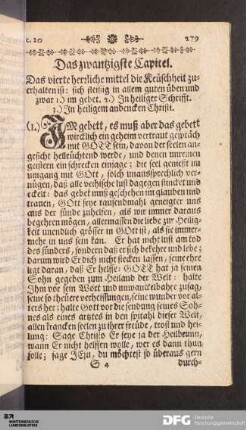 c. 20 279
Das zwantzigste Capitel.
Das vierte herrliche mittel die Keuschheit zu-
erhalten ist: sich fleissig in allem guten üben und
zwar 1.) im gebet. 2.) In heiliger Schrifft.
3.) In heiligem andencken Christi.
(1.) IM gebett, es muß aber das gebett
würcklich ein geheim vertraut gespräch
mit GOTT seyn, davon der seelen
gesicht helleüchtend werde, und denen unreinen
geistern ein schrecken einjage: die seel geneist im
umgang mit GOtt, solch unaussprechlich ver-
nügen, daß alle weltliche lust dagegen stinckt und
eckelt: das gebet muß geschehen im glauben und
trauen, GOtt seye tausendmahl geneigter uns
aus der sünde zuhelfen, als wir immer daraus
begehren mögen, allermaßen die liebe zur Heilig-
keit unendlich grösser in GOtt ist, als sie immer-
mehr in uns seyn kan. Er hat nicht lust am tod
des sünders, sondern daß er sich bekehre und lebe:
darum wird Er dich nicht stecken lassen, seine ehre
ligt daran, daß Er helfe: GOTT hat ja seinen
Sohn gegeben zum Heiland der Welt: halte
Ihm vor sein Wort und unwandelbahre zusag,
seine so theüre verheissungen, seine wunder vor al-
ters her: halte Gott vor die sendung seines Soh-
nes als eines artztes in den spital dieser Welt,
allen krancken seelen zu ihrer freüde, trost und hei-
lung: Sage Christo Er seye ja der Heilbrunn,
wann Er nicht helffen wolle, wer es dann thun
solle; sage JEsu, du möchtest so überaus gern
S 4 durch-
WÜRTTEMBERGISCHE
LANDESBIBLIOTHEK
DFG Deutsche
Forschungsgemeinschaft